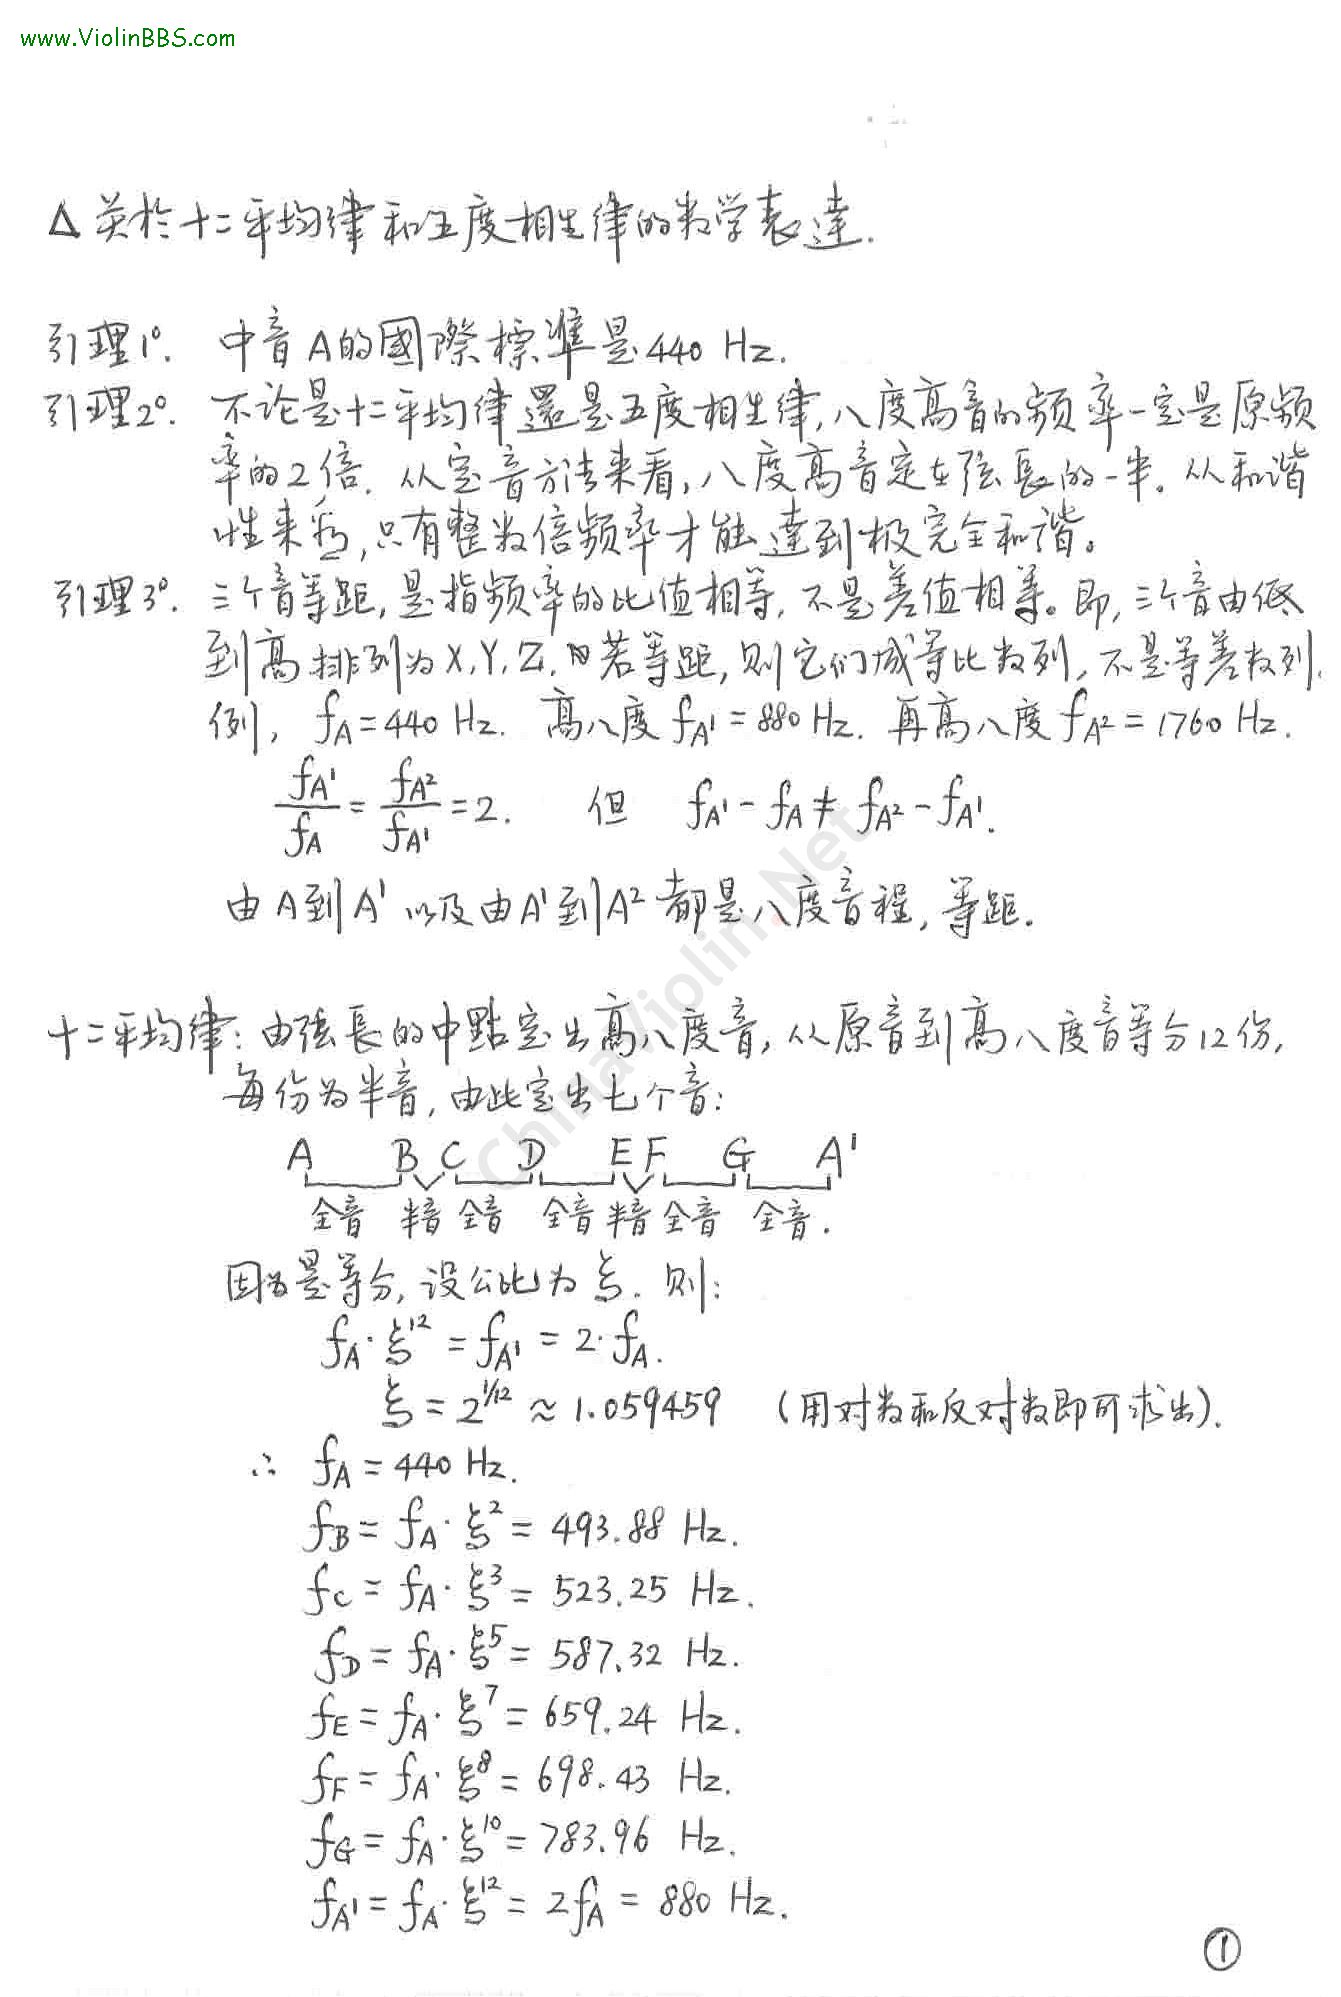 www.ViolinBBS.com
△ 关於十二平均律和五度相生律的数学表達.
引理1°. 中音A的國際標準是440 Hz.
引理2°. 不论是十二平均律還是五度相生律,八度高音的频率一定是原频
率的2倍. 从定音方法来看,八度高音定在弦長的一半。从和谐
性来看,只有整数倍频率才能達到极完全和谐。
引理3°. 三个音等距,是指频率的比值相等,不是差值相等。即,三个音由低
到高排列为X,Y,Z, 若等距,则它们成等比数列,不是等差数列.
例, fA=440 Hz. 高八度 fA¹=880 Hz. 再高八度 fA²=1760 Hz.
fA¹/fA = fA²/fA¹ = 2. 但 fA¹-fA ≠ fA²-fA¹.
由A到A¹以及由A¹到A²都是八度音程,等距.
十二平均律: 由弦長的中點定出高八度音,从原音到高八度音等分12份,
每份为半音,由此定出七个音:
A B C D E F G A¹
全音 半音 全音 全音 半音 全音 全音.
因为是等分,设公比为ξ. 则:
fA·ξ¹² = fA¹ = 2·fA.
ξ = 2^1/12 ≈ 1.059459 (用对数和反对数即可求出).
∴ fA = 440 Hz.
fB = fA·ξ² = 493.88 Hz.
fC = fA·ξ³ = 523.25 Hz.
fD = fA·ξ⁵ = 587.32 Hz.
fE = fA·ξ⁷ = 659.24 Hz.
fF = fA·ξ⁸ = 698.43 Hz.
fG = fA·ξ¹⁰ = 783.96 Hz.
fA¹ = fA·ξ¹² = 2fA = 880 Hz.
①
ChinaViolin.Net